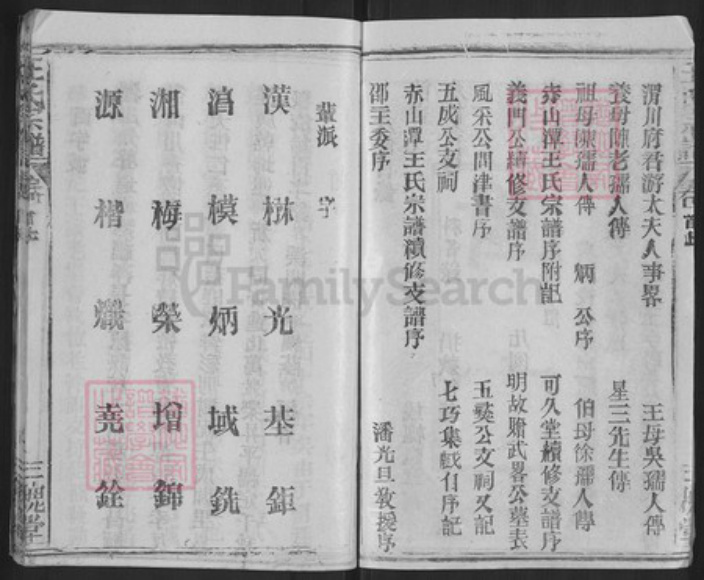 渭川府君游太夫人事畧　王母吳孺人傳
養母陳老孺人傳　星三先生傳
祖母陳孺人傳　炳公序　伯母徐孺人傳
赤山潭王氏宗譜序附記　可久堂續修支譜序
義門公續修支譜序　明故贈武畧公墓表
風采公問津書序　五奬公支祠又記
五成公支祠　七巧集戱自序記
赤山潭王氏宗譜續修支譜序
邵王委序　潘光旦敎授序
輩派字
漢　楙　光　基　鉅
滀　模　炳　域　銑
湘　梅　榮　增　錦
源　楷　熾　堯　銓
三槐堂
FamilySearch